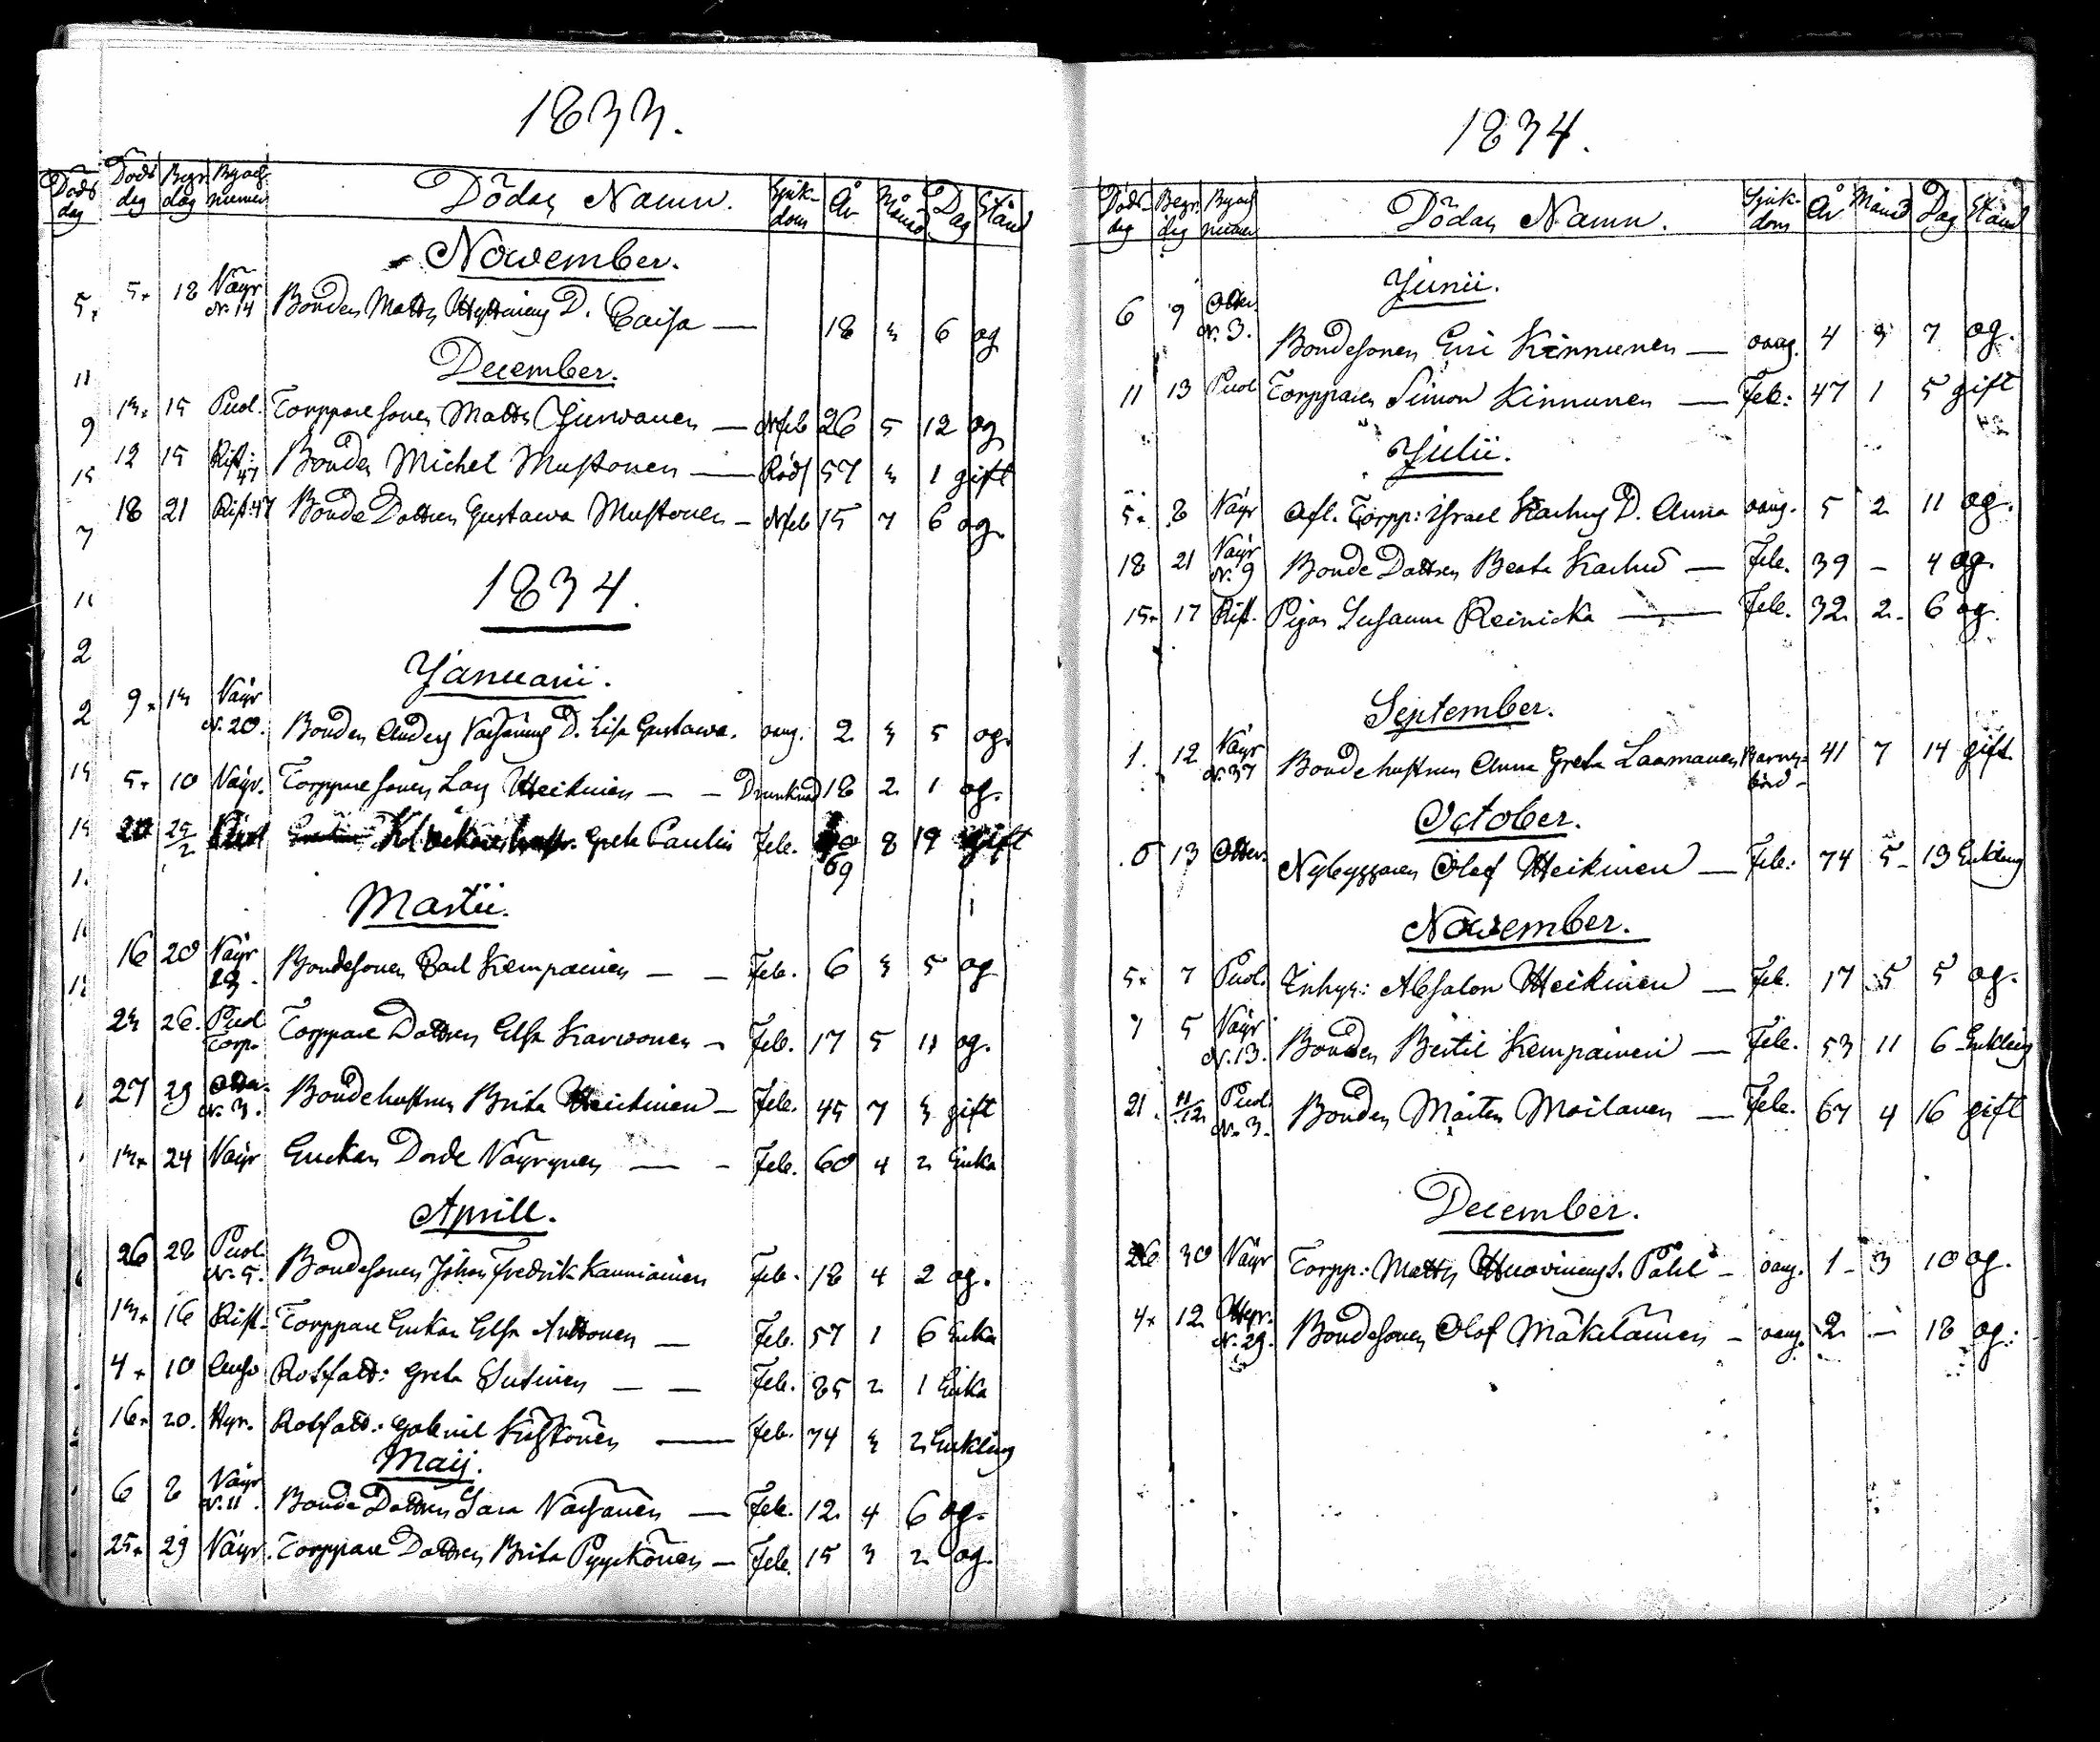 1833.
Döds dag Begr. dag Byach numer Dödas Namn. Sjukdom År Månad Dag Stånd
November.
5. 18 Väyr N. 14 Bonden Matts Hyttinens D. Caisa — 18 3 6 og
December.
13. 15 Puol. Torppare sonen Matts Jurvanen — Nfeb 26 5 12 og
12 15 Rist: 47 Bonden Michel Mustonen — Röds 57 3 1 gift
18 21 Rist: 47 Bonde Dottren Gustawa Mustonen — Nfeb 15 7 6 og.
1834.
Januarii.
9. 13 Väyr N. 20. Bonden Anders Väisänens D. Lisa Gustawa. oang. 2 3 5 og.
5. 10 Väyr. Torppare sonen Lars Heikinen — — Drunknad 18 2 1 og.
20 25/2 Greta Paulin Feb. 69 8 19 gift
Martii.
16 20 Väyr 23. Bondesonen Carl Kempainen — — Feb. 6 3 5 og
23 26. Puol Torp. Torppare Dottren Elsa Karwonen — Feb. 17 5 11 og.
27 29 N. 3. Bondehustrun Brita Heikinen — Feb. 45 7 3 gift
13. 24 Väyr Enckan Dorde Väyrynen — — Feb. 60 4 2 Enka
Aprill.
26 28 Puol. N. 5. Bondesonen Johan Fredrik Kauniainen Feb. 18 4 2 og.
13. 16 Rist. Torppare Enkan Elsa Anttonen — Feb. 57 1 6 Enka
4. 10 Rotfatt: Greta Sutinen — — Feb. 85 2 1 Enka
16. 20. Hyr. Rotfatt: Gabriel Kuistonen — Feb. 74 3 2 Enkling
Maij.
6 8 Väyr N. 11. Bonde Dottren Sara Väisänen — Feb. 12 4 6 og.
25. 29 Väyr. Torppare Dottren Brita Pyykönen — Feb. 15 3 2 og.
1834.
Döds dag Begr. dag Byach numer Dödas Namn. Sjukdom År Månad Dag Stånd
Junii.
6 9 N. 3. Bondesonen Eric Kinnunen — oang. 4 3 7 og.
11 13 Puol Torpparen Simon Kinnunen — Feb: 47 1 5 gift
Julii.
5. 8 Väyr Afl. Torpp: Israel Karhus D. Anna oang. 5 2 11 og.
18 21 Väyr N. 9 Bonde Dottren Beata Karhu — Feb. 39 — 4 og.
15. 17 Rist. Pigan Susanna Reinicka — Feb. 32 2 6 og.
September.
1. 12 Väyr N. 37 Bondehustrun Anna Greta Laamanen Barnsbörd — 41 7 14 gift.
October.
13 Nybyggaren Olof Heikinen — Feb: 74 5 13 Enkling
November.
5. 7 Puol. Inhys: Absalon Heikinen — Feb. 17 5 5 og.
5 Väyr N. 13. Bonden Bertil Kempainen — Feb. 53 11 6 Enkling
21. 11/12 Puol. N. 3. Bonden Mårten Moilanen — Feb. 67 4 16 gift
December.
26 30 Väyr Torpp: Matts Huovinens S. Påhl — oang. 1 — 3 10 og.
4. 12 N. 29. Bondesonen Olof Mäkeläinen — oang. 2 — 18 og: